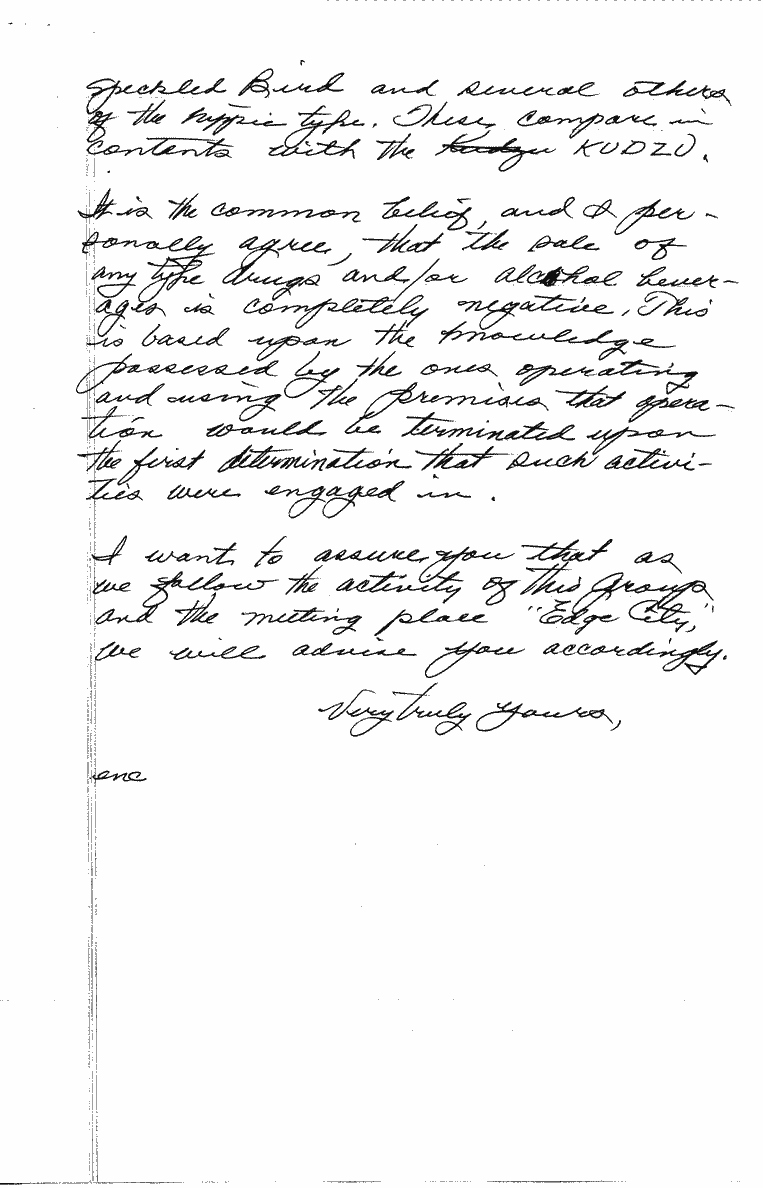 Speckled Bird and several others
of the hyppie type. These compare in
contents with the Kudzu KUDZU.
It is the common belief, and I per-
sonally agree, that the sale of
any type drugs and/or alcohol bever-
ages is completely negative. This
is based upon the knowledge
possessed by the ones operating
and using the premises that opera-
tion would be terminated upon
the first determination that such activi-
ties were engaged in.
I want to assure you that as
we follow the activity of this Group
and the meeting place "Edge City,"
we will advise you accordingly.
Very truly yours,
enc